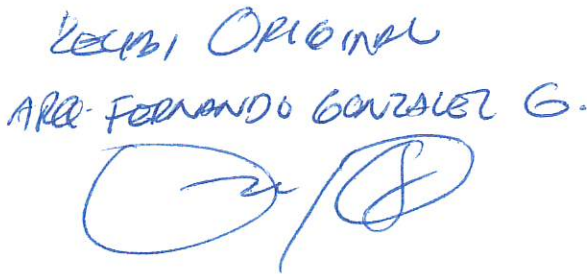 RECIBI ORIGINAL
ARQ. FERNANDO GONZALEZ G.